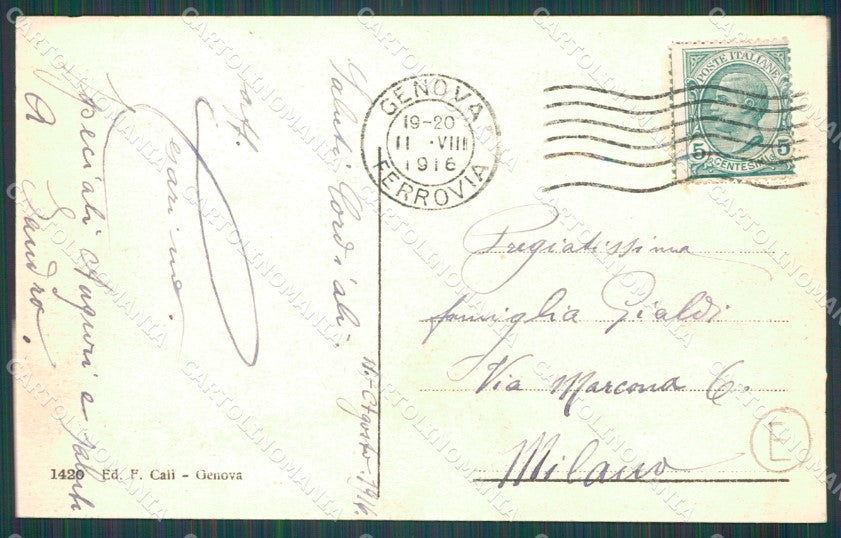 GENOVA
19-20
11 · VIII
1916
FERROVIA
POSTE ITALIANE
5 CENTESIMI 5
Saluti Cordiali.
11 - Agosto - 1916.
Cesarina.
Speciali Auguri e saluti
A Sandro.
Pregiatissima
famiglia Gialdi
Via Marcona 6.
Milano
E
1420 Ed. F. Calì - Genova
CARTOLINOMANIA